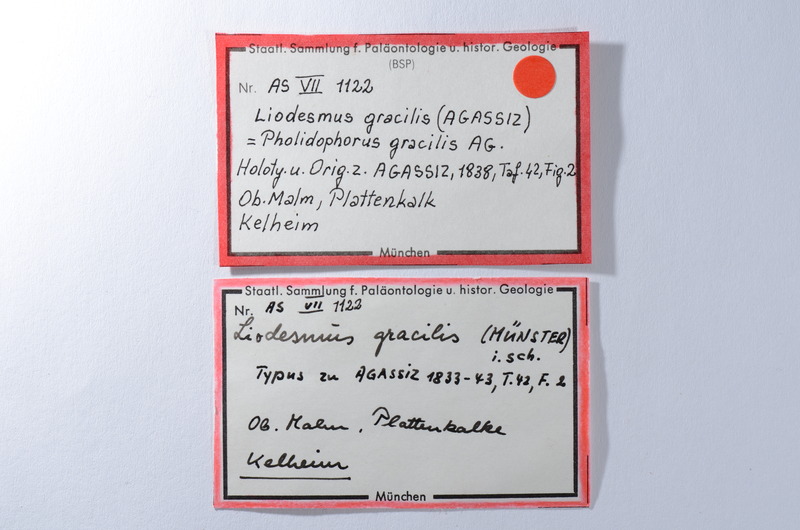 Staatl. Sammlung f. Paläontologie u. histor. Geologie
(BSP)
Nr. AS VII 1122
Liodesmus gracilis (AGASSIZ)
= Pholidophorus gracilis AG.
Holoty. u. Orig. z. AGASSIZ, 1838, Taf. 42, Fig. 2
Ob. Malm, Plattenkalk
Kelheim
München
Staatl. Sammlung f. Paläontologie u. histor. Geologie
Nr. AS VII 1122
Liodesmus gracilis (MÜNSTER)
i. sch.
Typus zu AGASSIZ 1833-43, T. 42, F. 2
Ob. Malm, Plattenkalke
Kelheim
München